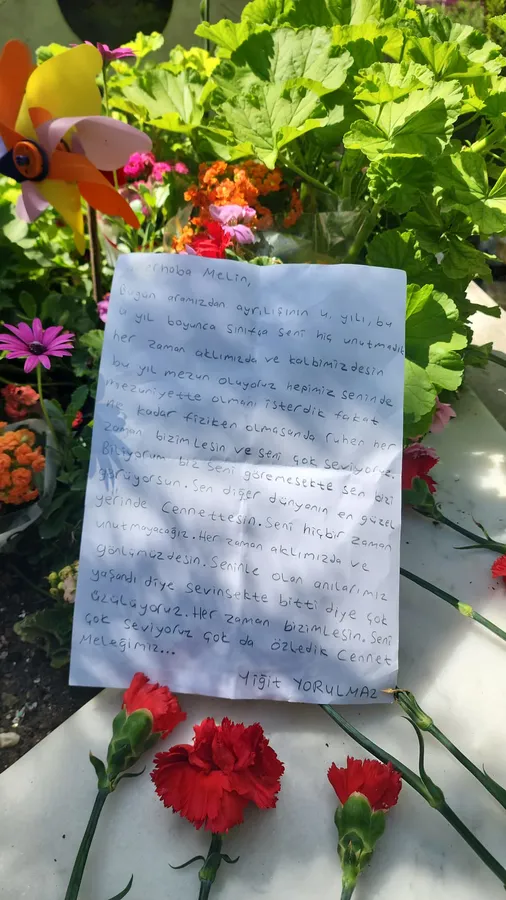 rhaba Melin,
Bugün aramızdan ayrılışının 4. yılı, bu
4 yıl boyunca sınıfça seni hiç unutmadık
her zaman aklımızda ve kalbimizdesin
bu yıl mezun oluyoruz hepimiz seninde
mezuniyette olmanı isterdik fakat
ne kadar fiziken olmasanda ruhen her
zaman bizimlesin ve seni çok seviyoruz.
Biliyorum biz seni göremesekte sen bizi
görüyorsun. Sen diğer dünyanın en güzel
yerinde Cennettesin. Seni hiçbir zaman
unutmayacağız. Her zaman aklımızda ve
gönlümüzdesin. Seninle olan anılarımız
yaşandı diye sevinsekte bitti diye çok
üzülüyoruz. Her zaman bizimlesin. Seni
çok seviyoruz çok da özledik Cennet
Meleğimiz...
Yiğit YORULMAZ